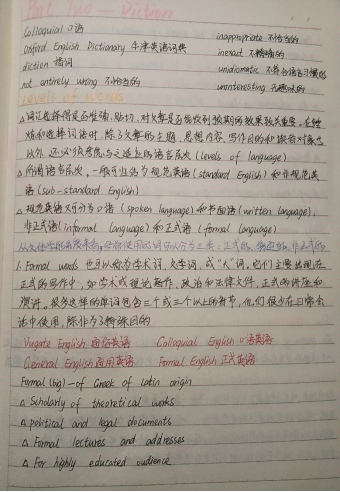 Part Two — Diction
Colloquial 口语 inappropriate 不恰当的
Oxford English Dictionary 牛津英语词典 inexact 不精确的
diction 措词 unidiomatic 不符合语言习惯的
not entirely wrong 不恰当的 uninteresting 无趣味的
Levels of Words
△词汇选择得是否准确、贴切,对文章是否能收到预期的效果
和选择词语时,除了文章的主题、思想内容、写作目的和读者对象
以外,还必须考虑与之适应的语言层次 (levels of language)
△所谓语言层次,一般可以分为规范英语 (standard English) 和非规范英
语 (sub-standard English)
△规范英语又可分为口语 (spoken language) 和书面语 (written language),
非正式语 (informal language) 和正式语 (formal language)
从文体学的角度来看,
1. Formal words 也可以称为学术词、文学词、或“大”词。它们主要出现在
正式的写作中,如学术或理论著作、政治和法律文件、正式的讲座和
演讲。很多这样的单词包含三个或三个以上的音节,他们很少在日常会
话中使用,除非为了特殊目的
Vulgate English 通俗英语 Colloquial English 口语英语
General English 通用英语 Formal English 正式英语
Formal (big) — of Greek of Latin origin
△ Scholarly of theoretical works
△ political and legal documents
△ Formal lectures and addresses
△ For highly educated audience